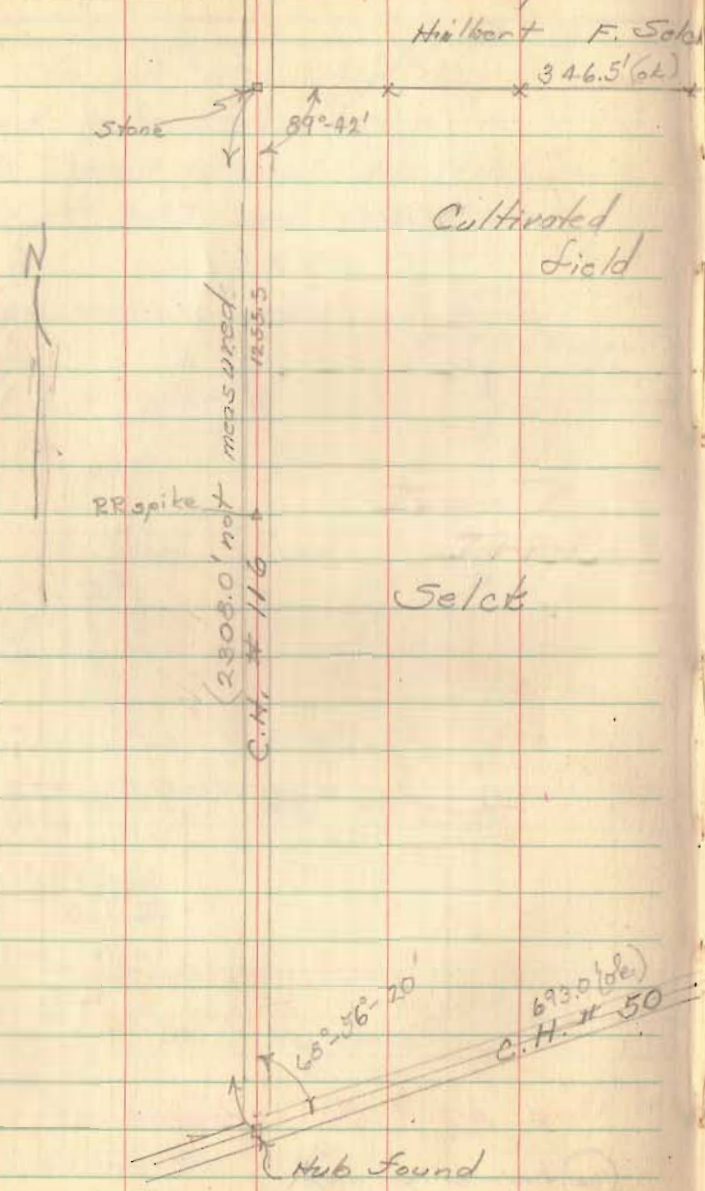 Hilbert F. Selc
346.5' (ok)
Stone
89°-42'
Cultivated
field
N
(2308.0' not measured
1255.5
RR spike
C.H. # 116
Selck
68°-56'-20"
693.0' (ok)
C.H. # 50
Hub found